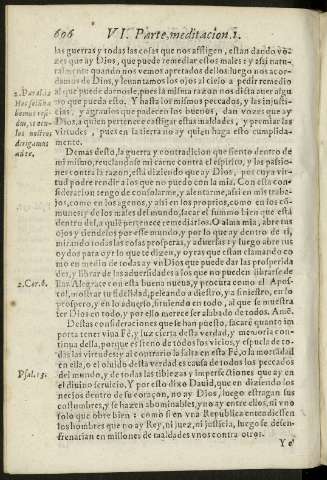 606 VI. Parte, meditacion.1.
las guerras y todas las cosas que nos affligen, estan dando vo-
zes que ay Dios, que puede remediar estos males: y assi natu-
ralmente quando nos vemos apretados dellos luego nos acor-
damos de Dios, y leuantamos los ojos al cielo a pedir remedio
al que puede darnosle, pues la misma razon nos dicta auer algu
no que pueda esto. Y hasta los mismos peccados, y las injusti-
cias, y agrauios que padecen los buenos, dan vozes que ay
Dios, a quien pertenece castigar estas maldades, y premiar las
virtudes, pues en la tierra no ay quien haga esto cumplida-
mente.
2. Paral. 12
Nos
bemos
mos,
nuestros
dirigamus
ad te.
Demas desto, la guerra y contradicion que siento dentro de
mi mismo, reuelandose mi carne contra el espiritu, y las passio-
nes contra la razon, està diziendo que ay Dios, por cuya vir-
tud podre rendir a los que no puedo con la mia. Con esta con-
sideracion tengo de consolarme, y alentarme, assi en mis traba-
jos, como en los agenos, y assi en los proprios, como en los cõ-
munes: y de los males del mundo, sacar el summo bien que està
dentro del, a quiẽ pertenece remediarlos. O alma mia, abre tus
ojos y tiendelos por esse mundo, y por lo que ay dentro de ti,
mirando todas las cosas prosperas, y aduersas: y luego abre tus
oydos para oyr lo que te dizen, y oyras que estan clamando co
mo en medio de todas ay vn Dios que puede dar las prosperida
des, y librar de las aduersidades a los que no pueden librarse de
llas. Alegrate con esta buena nueua, y procura como el Apos-
2. Cor. 6.
tol, mostrar tu fidelidad, peleando a diestro, y a siniestro, en lo
prospero, y en lo aduerso, siruiendo en todo, al que se muestra
ser Dios en todo, y por ello merece ser alabado de todos. Amẽ.
Destas consideraciones que se han puesto, sacarè quanto im
porta tener viua Fè, y luz cierta desta verdad, y memoria con-
tinua della, porque es freno de todos los vicios, y espuela de to-
das las virtudes: y al contrario la falta en esta Fè, o la mortãdad
en ella, o el oluido desta verdad es causa de todos los peccados
del mundo, y de todas las tibiezas y imperfectiones que ay en
Psal. 13.
el diuino seruicio. Y por esto dixo Dauid, que en diziendo los
necios dentro de su coraçon, no ay Dios, luego estragan sus
costumbres, y se hazen abominables, y no ay entre ellos, ni vno
solo que obre bien: como si en vna Republica entendiessen
los hombres que no ay Rey, ni juez, ni justicia, luego se desen-
frenarian en millones de maldades vnos contra otros.
Y o